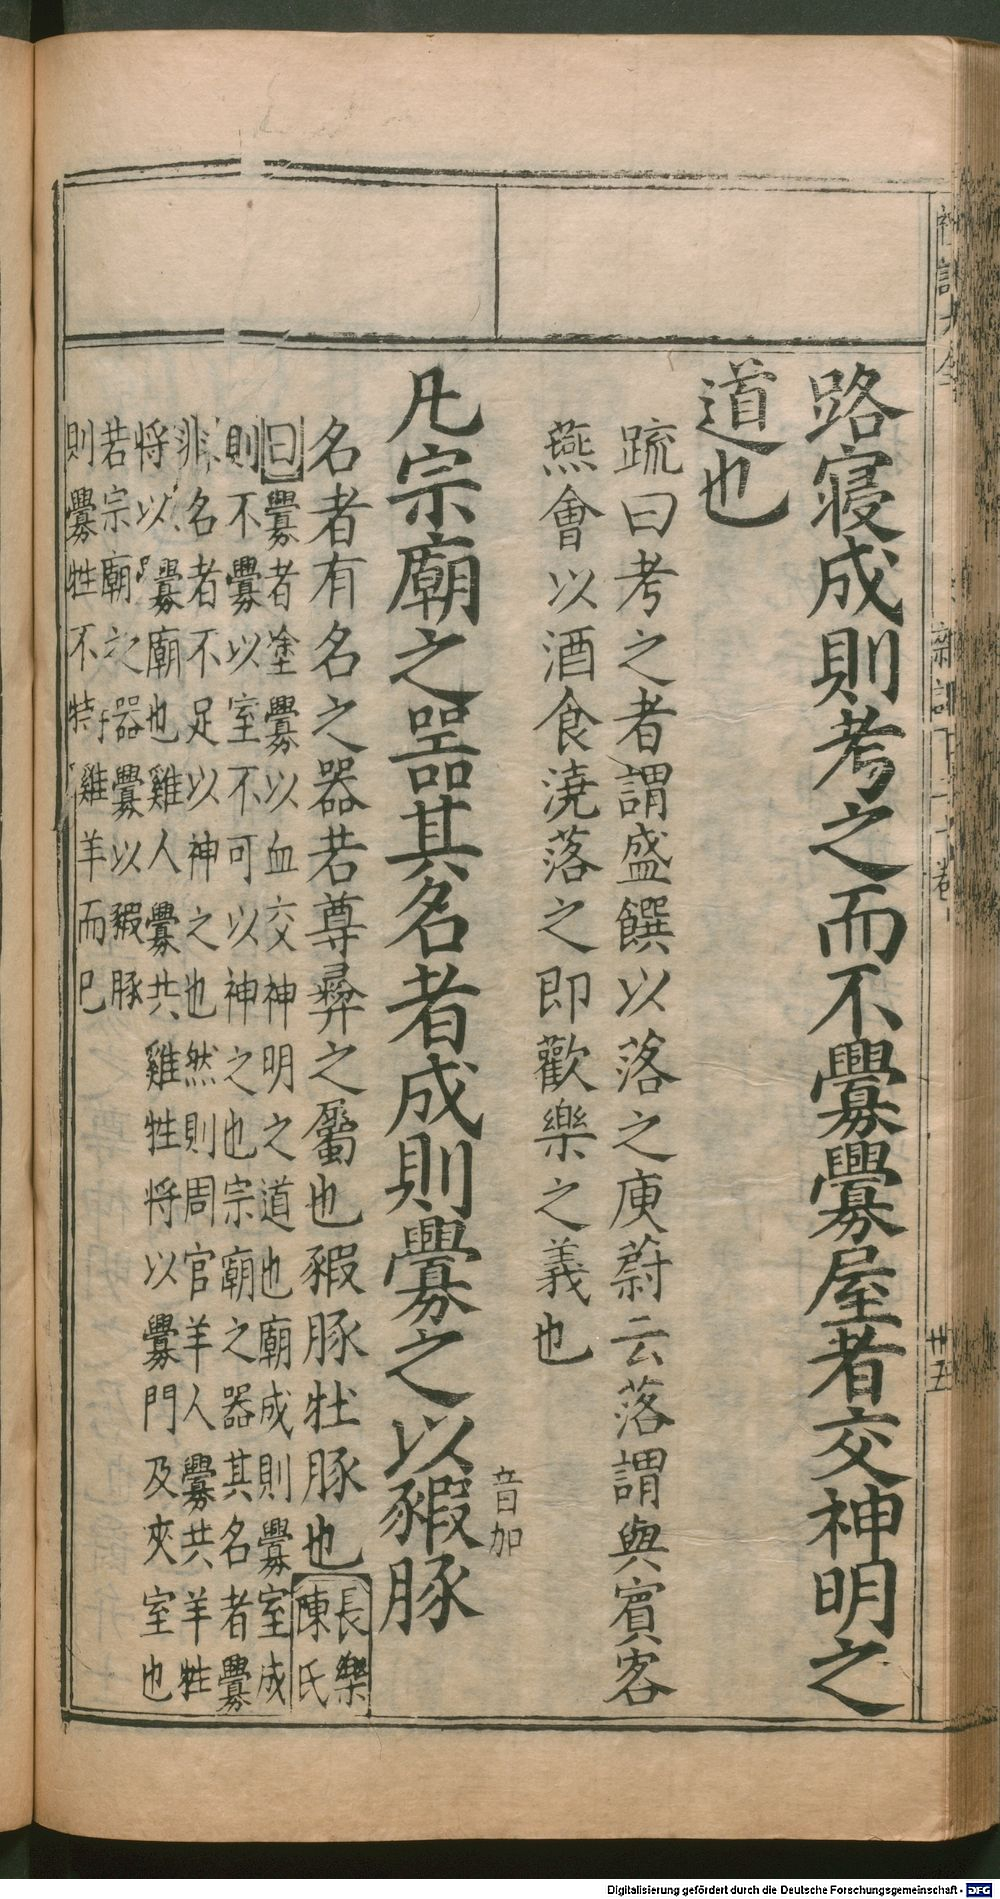 路寢成則考之而不釁釁屋者交神明之
道也
疏曰考之者謂盛饌以落之庾蔚云落謂與賓客
燕會以酒食澆落之即歡樂之義也
凡宗廟之噐其名者成則釁之以豭豚
音加
名者有名之器若尊彛之屬也豭豚牡豚也
長樂
陳氏
曰釁者塗釁以血交神明之道也廟成則釁室成
則不釁以室不可以神之也宗廟之器其名者釁
非名者不足以神之也然則周官羊人釁共羊牲
将以釁廟也雞人釁共雞牲将以釁門及夾室也
若宗廟之器釁以豭豚
則釁牲不特雞羊而已
Digitalisierung gefördert durch die Deutsche Forschungsgemeinschaft - DFG